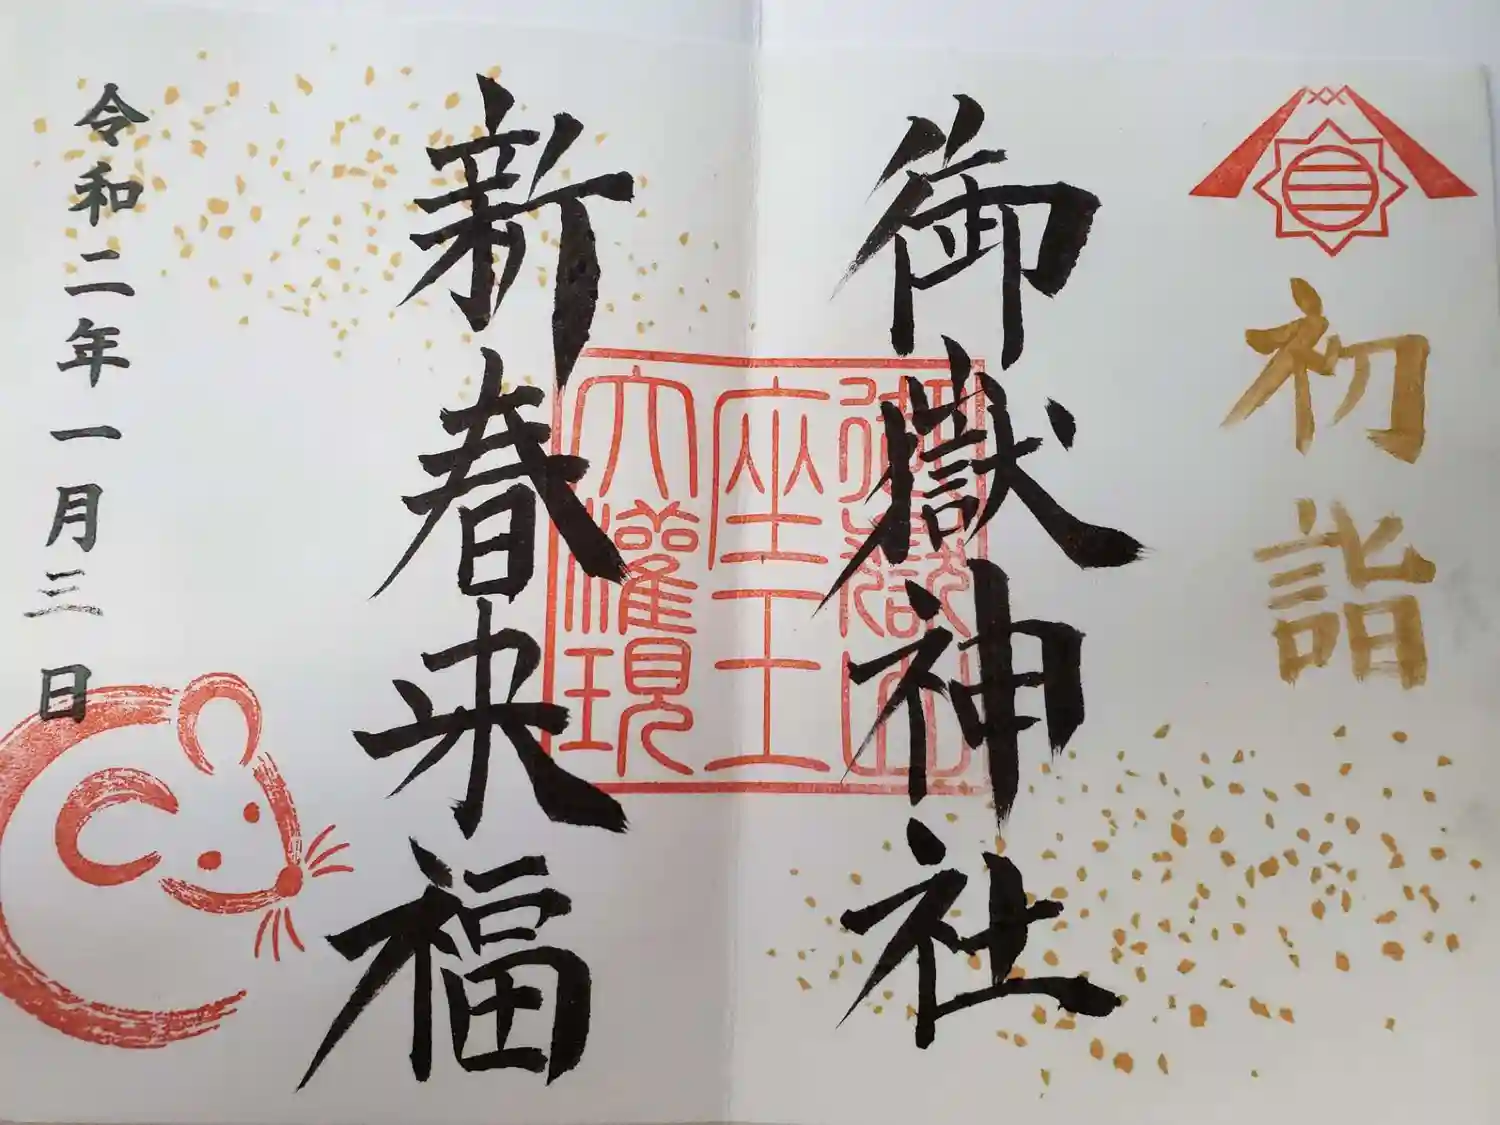 初詣
御嶽神社
御嶽山
座王
大権現
新春来福
令和二年一月三日